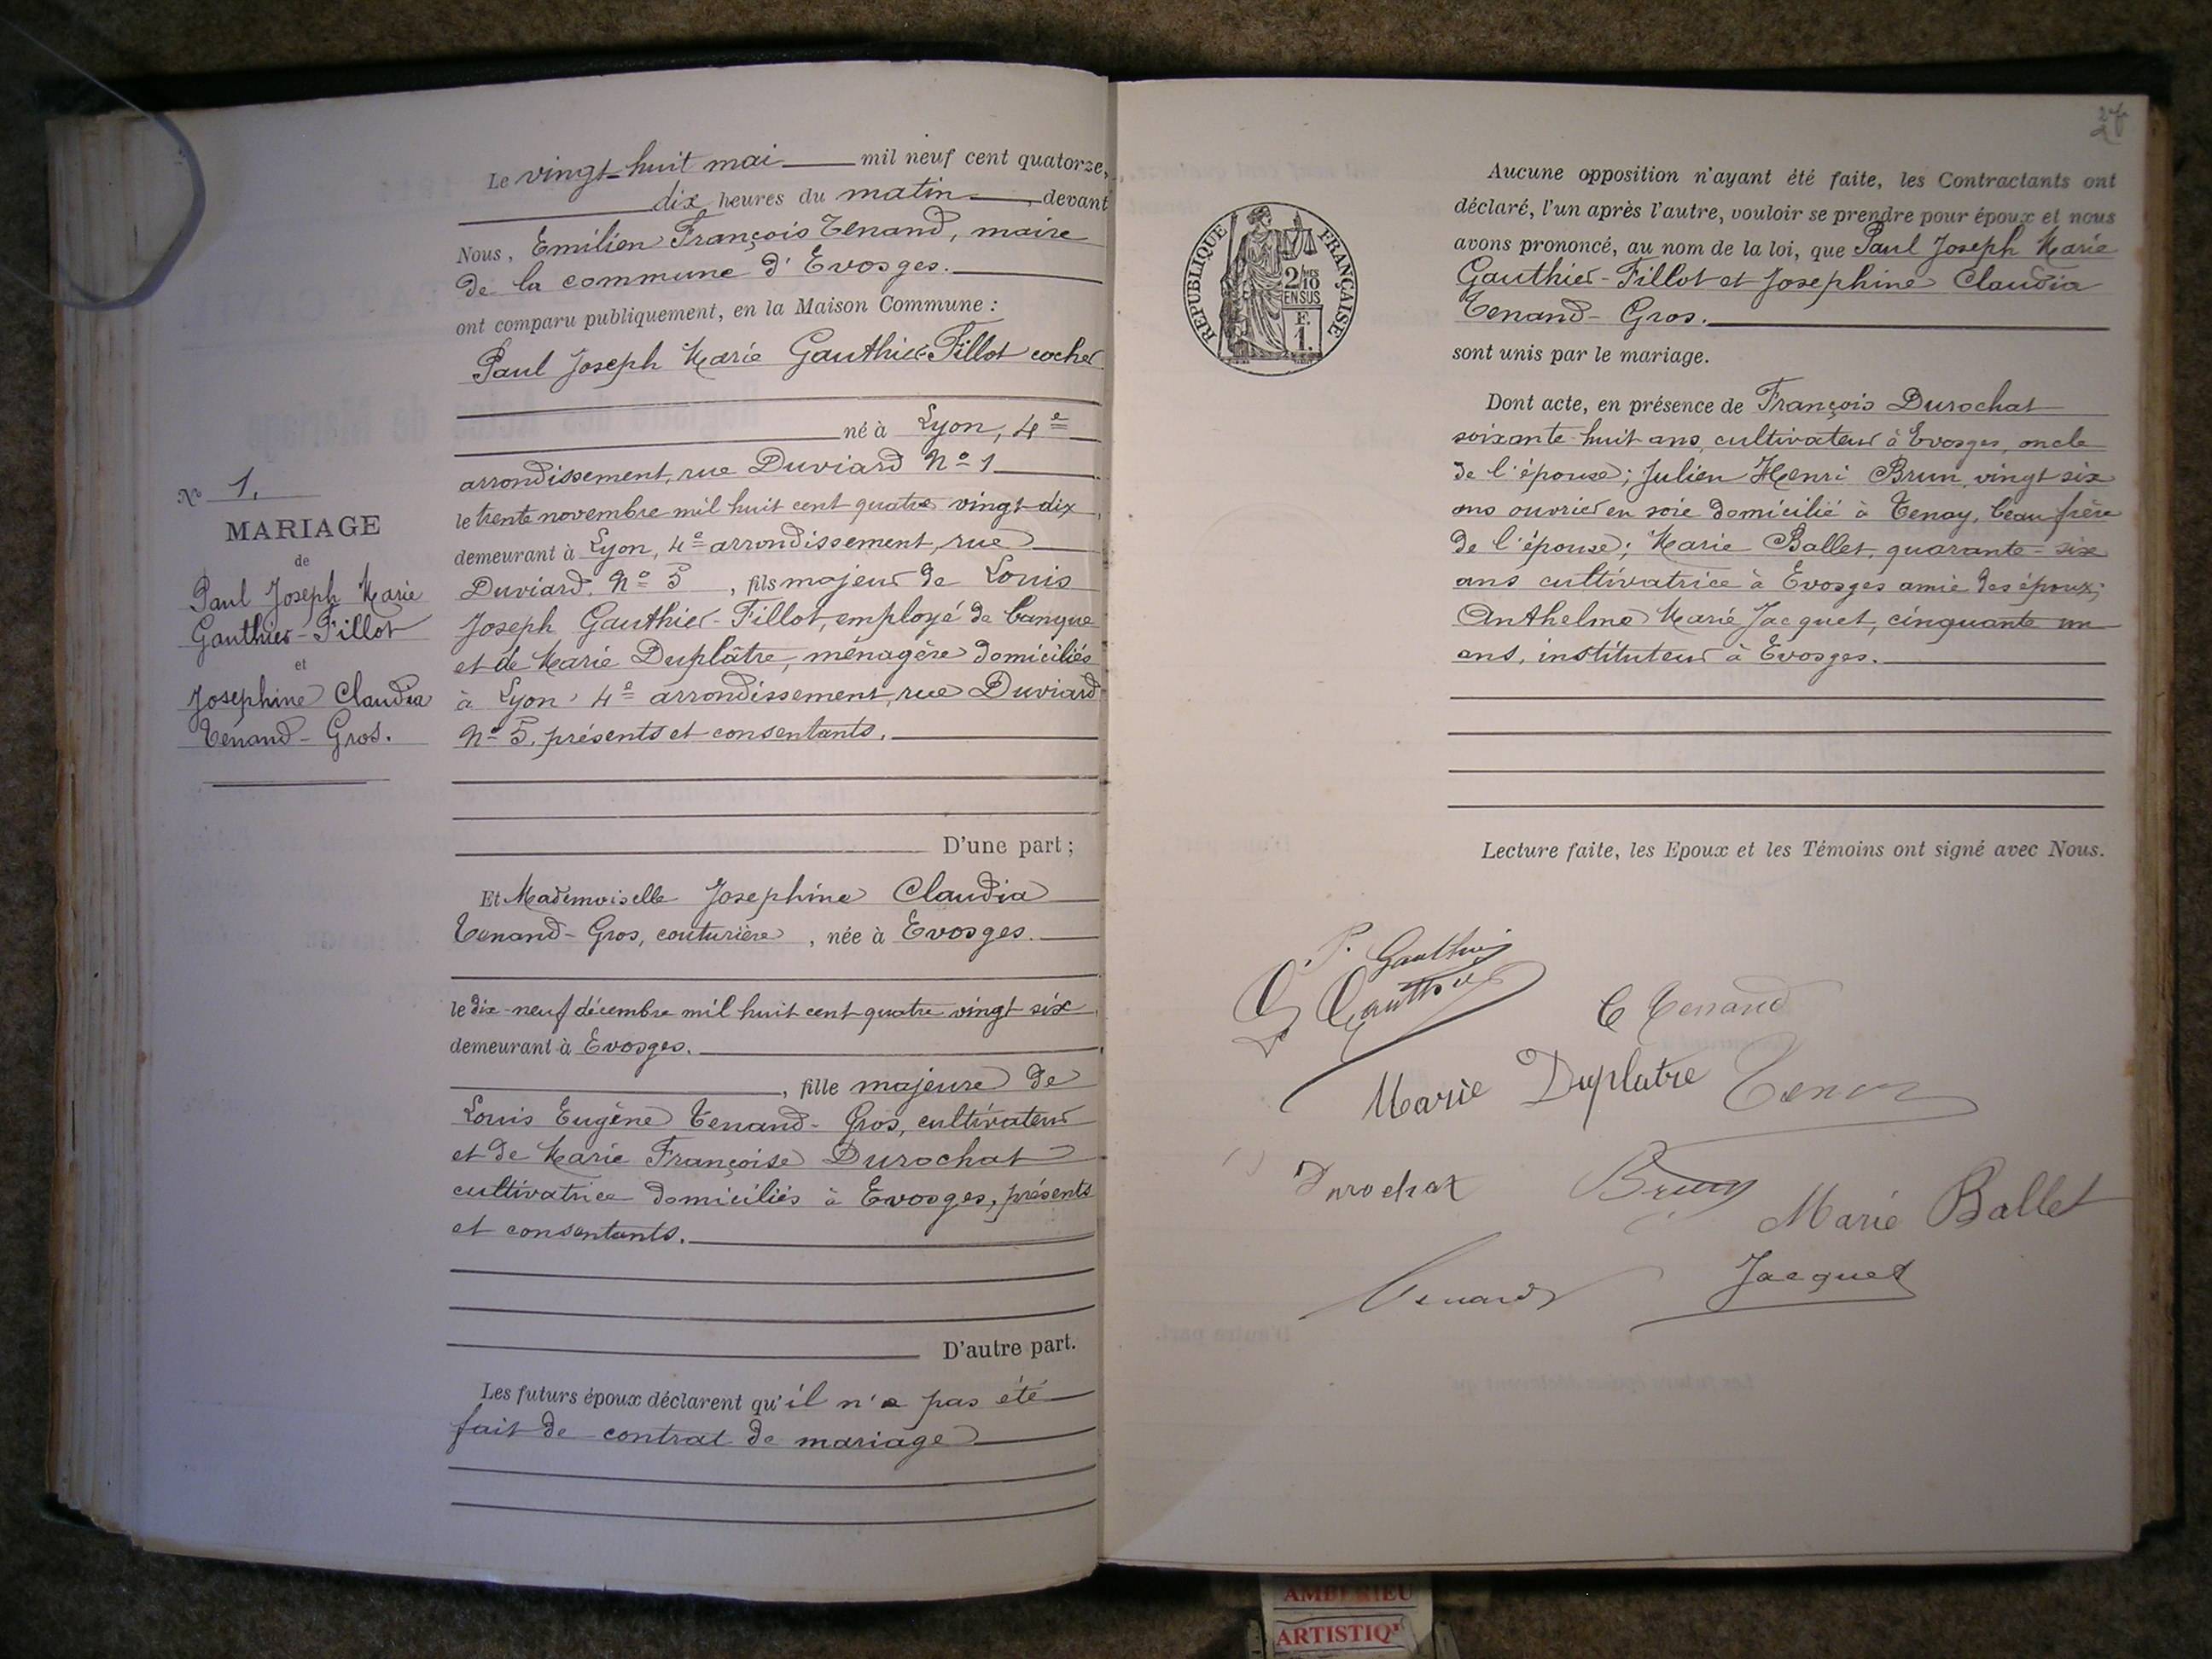 N° 1.
MARIAGE
de
Paul Joseph Marie
Gauthier-Fillot
et
Josephine Claudia
Tenand-Gros.
Le vingt-huit mai mil neuf cent quatorze,
dix heures du matin, devant
Nous, Emilien François Tenand, maire
de la commune d'Evosges.
ont comparu publiquement, en la Maison Commune :
Paul Joseph Marie Gauthier-Fillot cocher
né à Lyon, 4e
arrondissement, rue Duviard N° 1
le trente novembre mil huit cent quatre vingt-dix,
demeurant à Lyon, 4e arrondissement, rue
Duviard N° 5, fils majeur de Louis
Joseph Gauthier-Fillot, employé de banque
et de Marie Duplâtre, ménagère domiciliés
à Lyon, 4e arrondissement, rue Duviard
N° 5, présents et consentants.
D'une part ;
Et Mademoiselle Josephine Claudia
Tenand-Gros, couturière, née à Evosges.
le dix-neuf décembre mil huit cent quatre vingt-six,
demeurant à Evosges.
, fille majeure de
Louis Eugène Tenand-Gros, cultivateur
et de Marie Françoise Durochat
cultivatrice domiciliés à Evosges, présents
et consentants.
D'autre part.
Les futurs époux déclarent qu'il n'a pas été
fait de contrat de mariage
RÉPUBLIQUE FRANÇAISE
2/10
EN SUS
F.
1.
Aucune opposition n'ayant été faite, les Contractants ont
déclaré, l'un après l'autre, vouloir se prendre pour époux et nous
avons prononcé, au nom de la loi, que Paul Joseph Marie
Gauthier-Fillot et Josephine Claudia
Tenand-Gros.
sont unis par le mariage.
Dont acte, en présence de François Durochat
soixante-huit ans, cultivateur à Evosges, oncle
de l'épouse; Julien Henri Brun, vingt six
ans ouvrier en soie domicilié à Tenay, beau frère
de l'épouse; Marie Ballet, quarante-six
ans cultivatrice à Evosges amie des époux;
Anthelme Marie Jacquet, cinquante un
ans, instituteur à Evosges.
Lecture faite, les Epoux et les Témoins ont signé avec Nous.
P. Gauthier
Gauthier
C Tenand
Marie Duplatre
Durochat Brun
Marie Ballet
Tenand Jacquet
AMBERIEU
ARTISTIQ